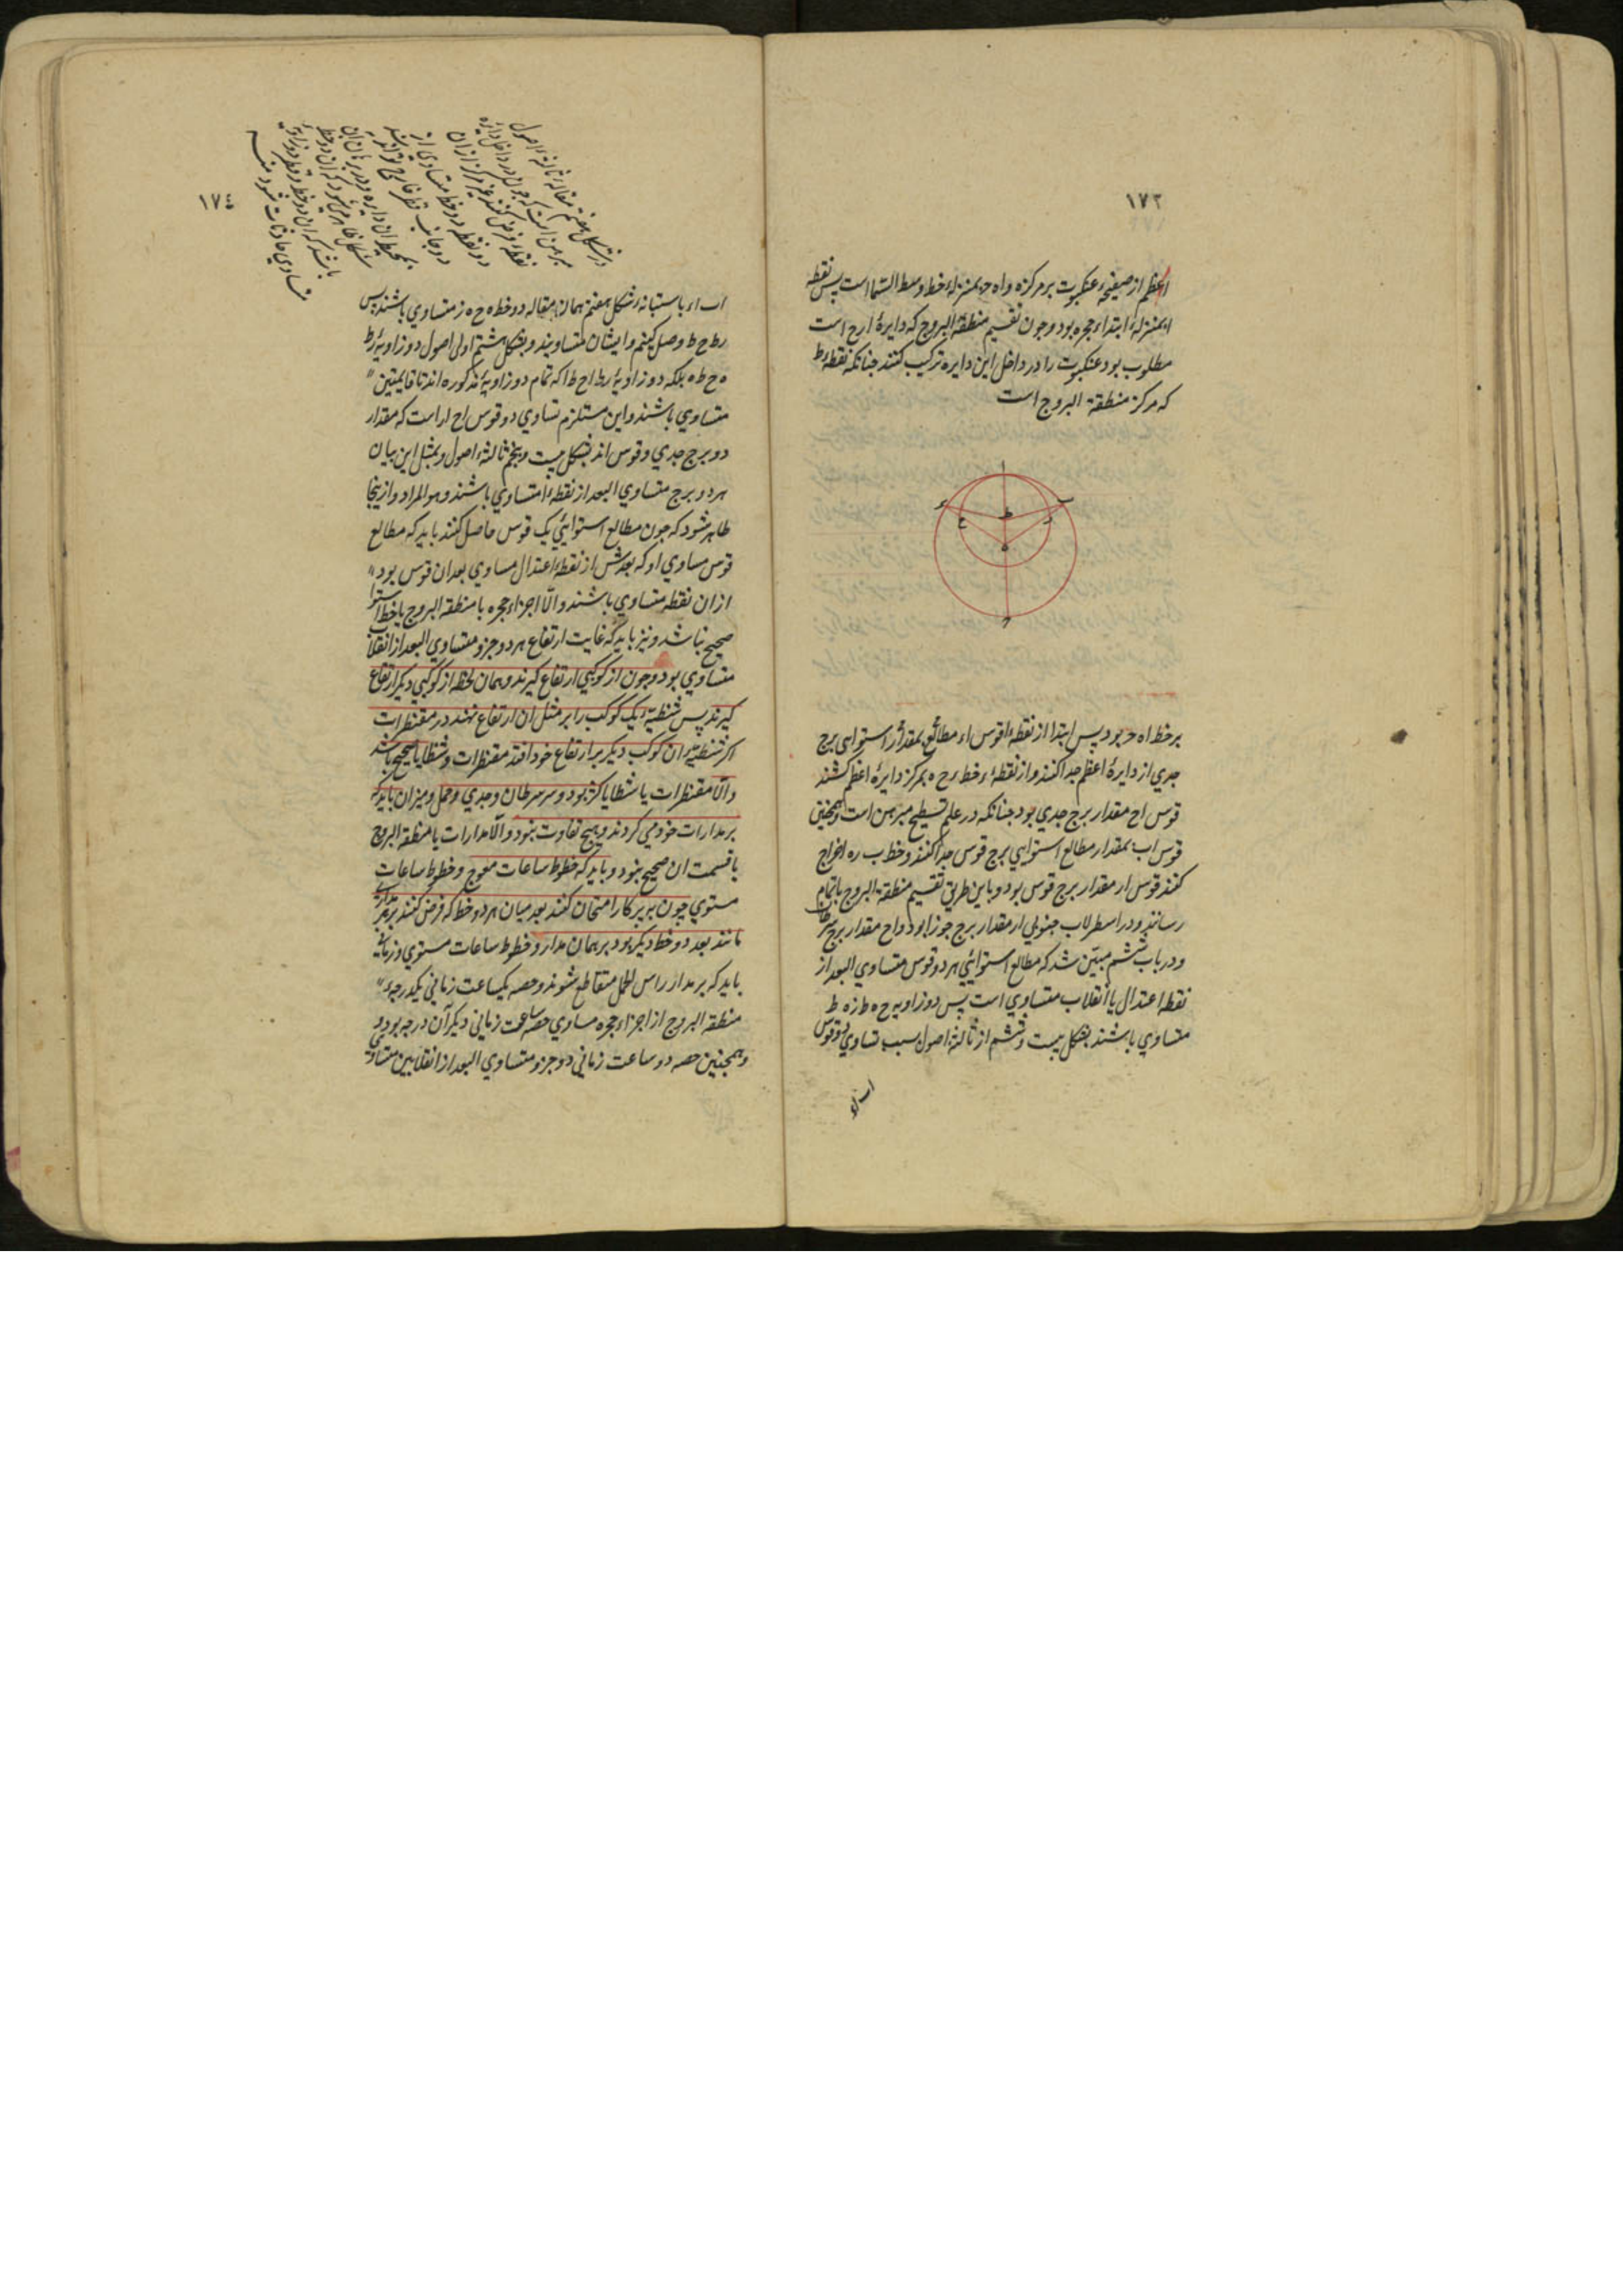 ١٧٣
اعظم از صفیحهٔ عنکبوت بر مرکز ه و اه ح بمنزلهٔ خط وسط السما است پس نقطه
ا بمنزلهٔ ابتداء حجره بود و چون تقسیم منطقة البروج که دایرهٔ ارح است
مطلوب بود عنکبوت را در داخل این دایره ترکیب کنند چنانکه نقطهٔ ط
که مرکز منطقة البروج است
ا
ب
ء
ط
ح
ر
ه
بر خط اه ح بود پس ابتدا از نقطهٔ ا قوس اء مطالع بمقدار استوایی برج
جدي از دایرهٔ اعظم جدا کنند و از نقطهٔ ء خط ء ح ه بمرکز دایرهٔ اعظم کشند
قوس اح مقدار برج جدي بود چنانکه در علم تسطیح مبرهن است و همچنین
قوس اب بمقدار مطالع استوایي برج قوس جدا کنند و خط ب ره اخراج
کنند قوس ار مقدار برج قوس بود و باین طریق تقسیم منطقة البروج باتمام
رسانند و در اسطرلاب جنوبي ار مقدار برج جوزا بود و اح مقدار برج سرطان
و در باب ششم مبیّن شد که مطالع استوایي هر دو قوس متساوي البعد از
نقطهٔ اعتدال یا انقلاب متساوي است پس دو زاویه ح ه ط ز ه ط
متساوي باشند بشکل بیست و ششم از ثالثهٔ اصول سبب تساوي دو قوس
اب اء
١٧٤
در شکل هفتم مقالهٔ ثالثهٔ اصول
مبرهن است که چون در داخل دایره
نقطهٔ فرض کنند غیر مرکز از ان
دو نقطه دو خط متساوي از
دو جانب قطر
بمحیط ان دایره
باشد که ان دو خط و قطر
متساوي حادث شود منه
اب اء باستبانهٔ شکل هفتم همان مقاله دو خط ه ح ه ز متساوي باشند پس
رط ح ط وصل کنیم و ایشان متساویند و بشکل هشتم اولی اصول دو زاویهٔ ه ر ط
ه ح ط ه بلکه دو زاویهٔ ر ط ا ح ط ا که تمام دو زاویهٔ مذکوره اند تا قایمتین
متساوي باشند و این مستلزم تساوي دو قوس اح ار است که مقدار
دو برج جدي و قوس اند بشکل بیست و پنجم ثالثهٔ اصول و بمثل این بیان
هر دو برج متساوي البعد از نقطهٔ ا متساوي باشند و هو المراد و از ینجا
ظاهر شود که چون مطالع استوایي یک قوس حاصل کنند باید که مطالع
قوس مساوي او که بعدش از نقطهٔ اعتدال مساوي بعد ان قوس بود
از ان نقطه متساوي باشند و الّا اجزاء حجره با منطقة البروج یا خط استوا
صحیح نباشد و نیز باید که غایت ارتفاع هر دو جزو متساوي البعد از انقلاب
متساوي بود و چون از کوکبي ارتفاع گیرند و همان لحظه از کوکبي دیگر ارتفاع
گیرند پس شظیهٔ یک کوکب را بر مثل ان ارتفاع نهند در مقنطرات
اگر شظیهٔ ان کوکب دیگر بر ارتفاع خود افتد مقنطرات و شظایا صحیح باشد
و الّا مقنطرات یا شظایا کژ بود و سر سرطان و جدي و حمل و میزان باید که
بر مدارات خود می گردند و هیچ تفاوت نبود و الّا مدارات یا منطقة البروج
یا قسمت ان صحیح نبود و باید که خطوط ساعات معوج و خطوط ساعات
مستوي چون بپرگار امتحان کنند بعد میان هر دو خط که فرض کنند بر مدار
مانند بعد دو خط دیگر بود بر همان مدار و خطوط ساعات مستوي و زماني
باید که بر مدار راس الحمل متقاطع شوند و حصه یکساعت زماني یکدرجهٔ
منطقة البروج از اجزاء حجره مساوي حصه ساعت زماني دیگر آن درجه بود و
و همچنین حصه دو ساعت زماني دو جزو متساوي البعد از انقلابین متساوي